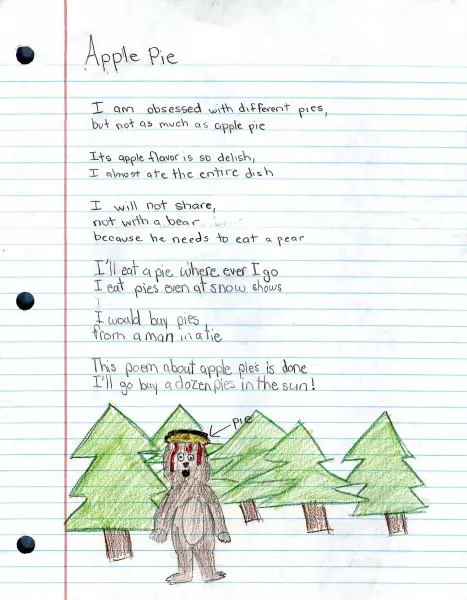 Apple Pie
I am obsessed with different pies,
but not as much as apple pie
Its apple flavor is so delish,
I almost ate the entire dish
I will not share,
not with a bear
because he needs to eat a pear
I'll eat a pie where ever I go
I eat pies even at snow shows
I would buy pies
from a man in a tie
This poem about apple pies is done
I'll go buy a dozen pies in the sun!
pie